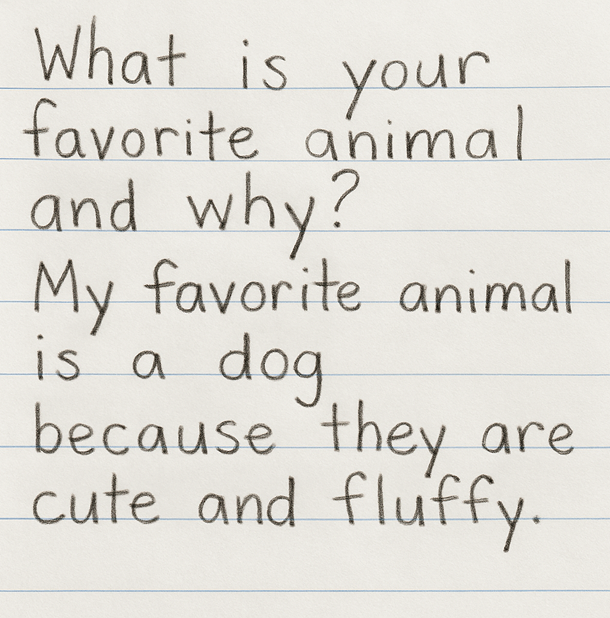 What is your
favorite animal
and why?
My favorite animal
is a dog
because they are
cute and fluffy.